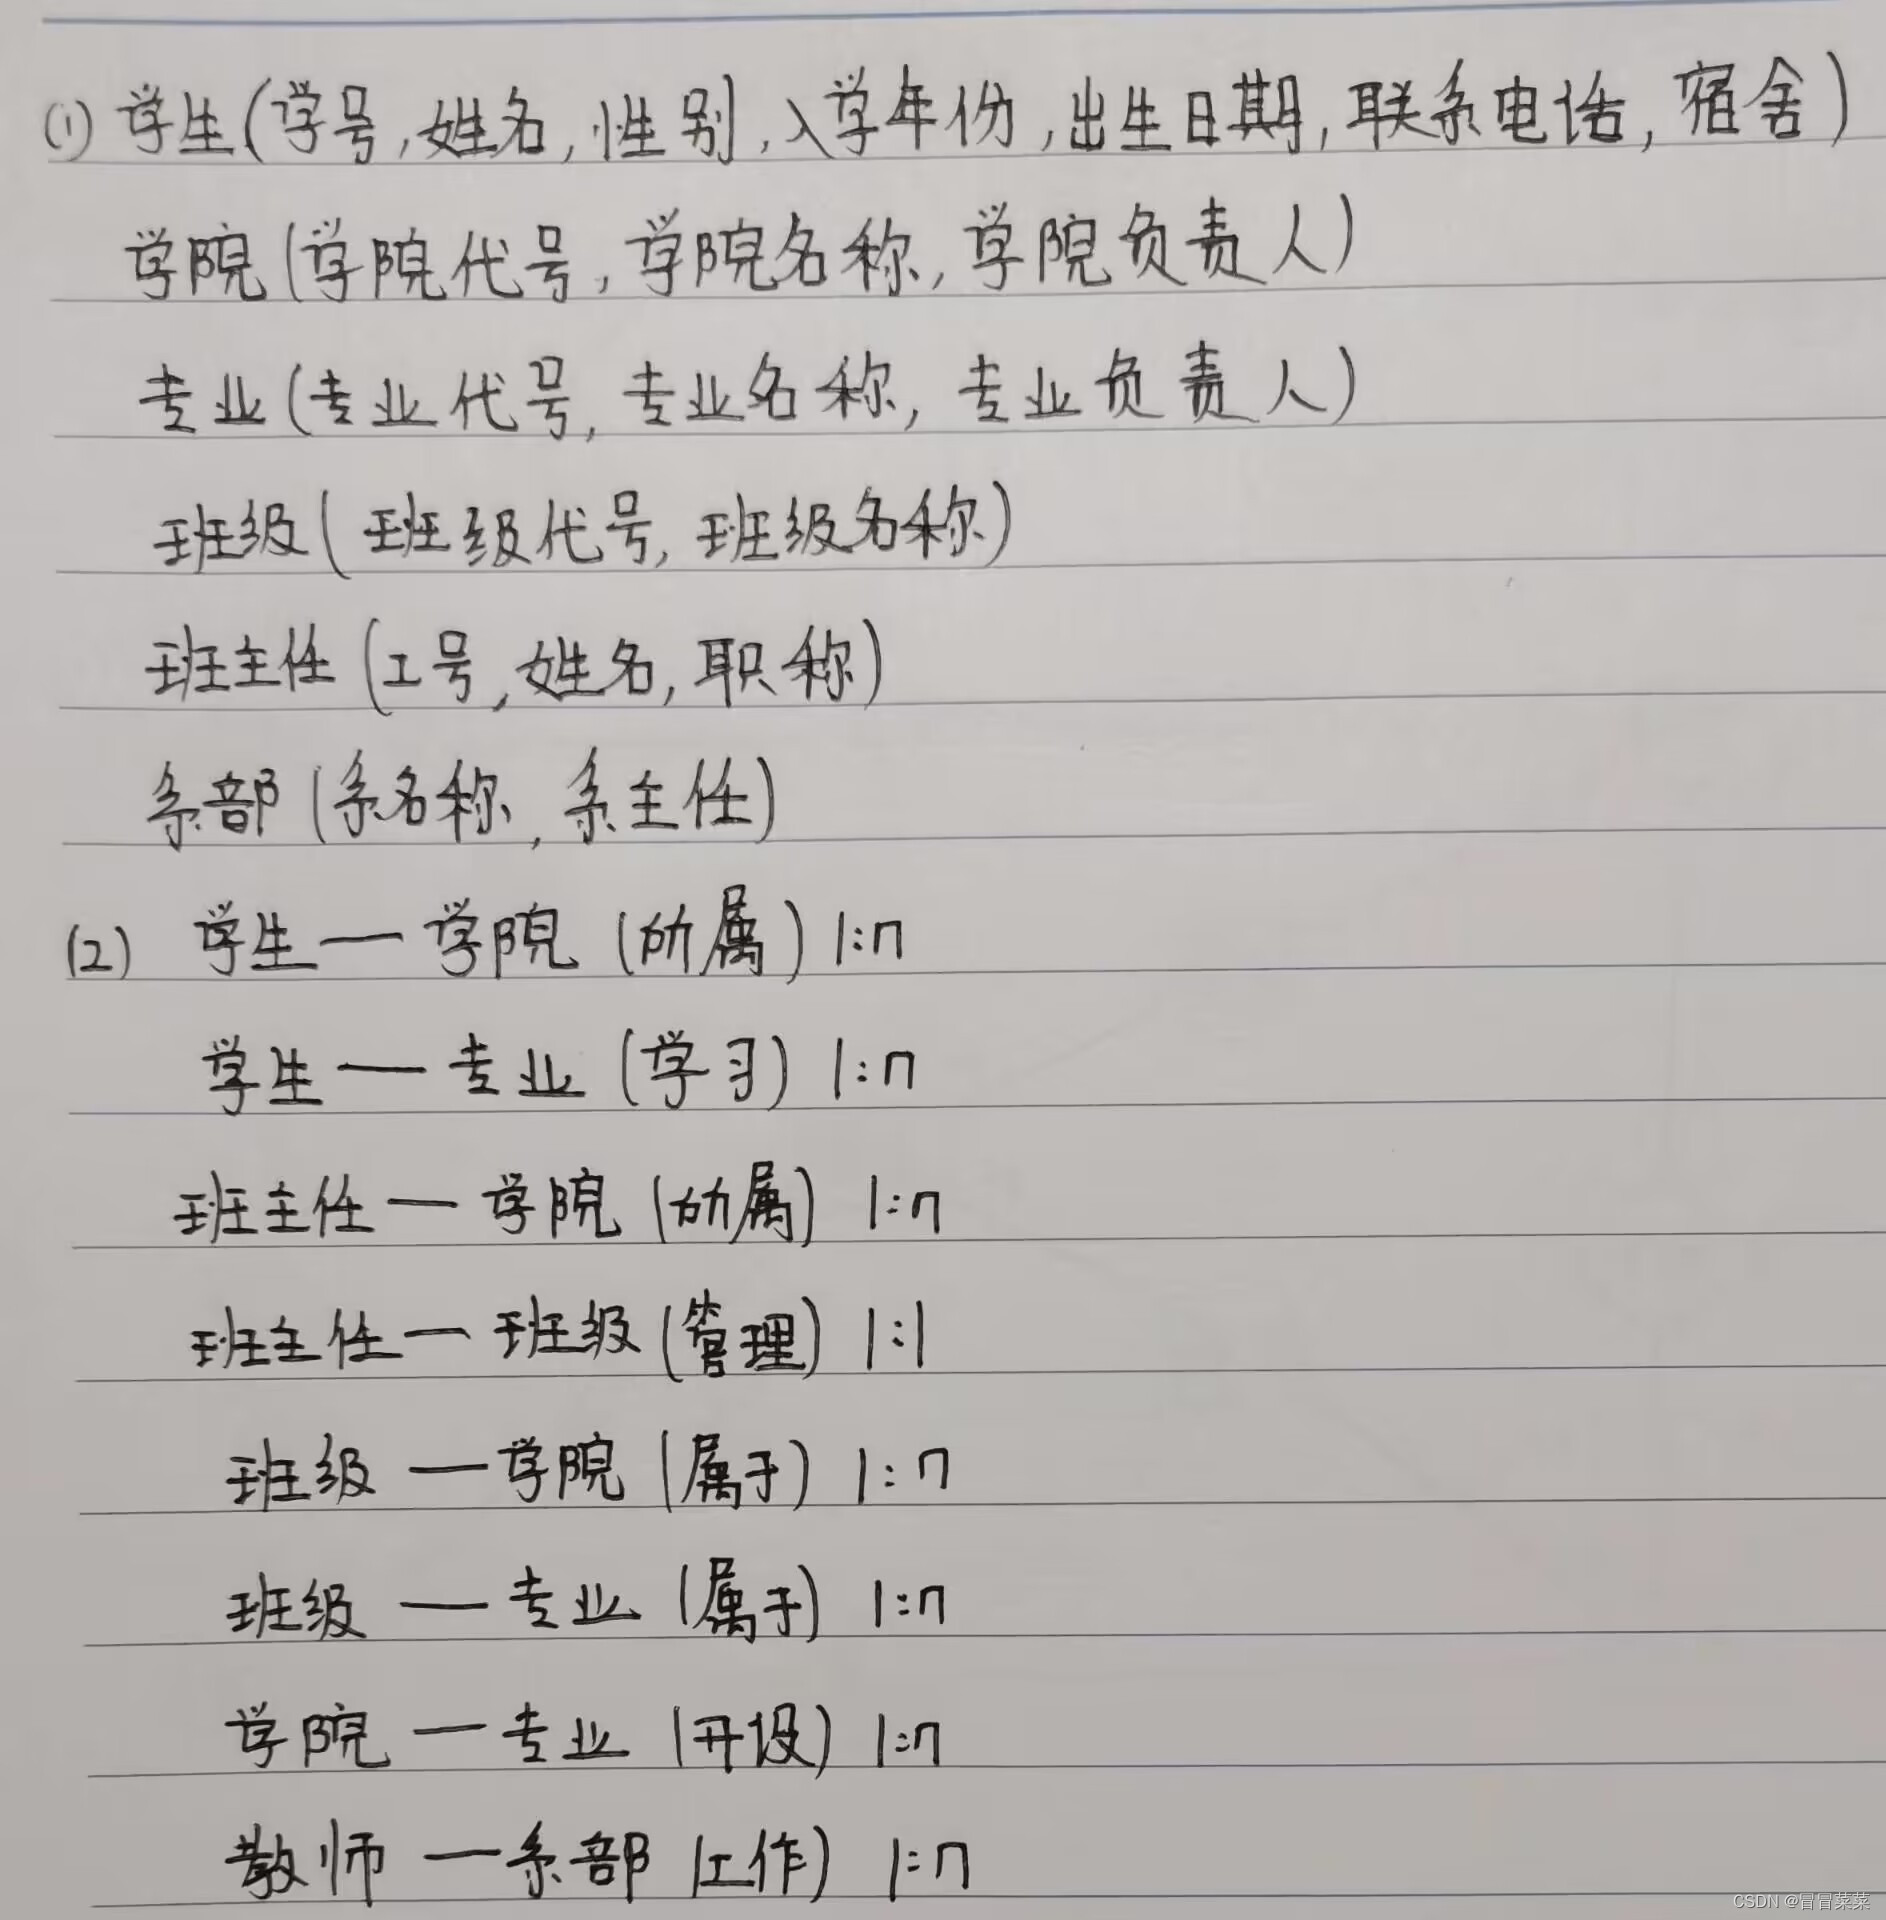 (1) 学生(学号,姓名,性别,入学年份,出生日期,联系电话,宿舍)
学院(学院代号,学院名称,学院负责人)
专业(专业代号,专业名称,专业负责人)
班级(班级代号,班级名称)
班主任(工号,姓名,职称)
系部(系名称,系主任)
(2) 学生—学院(所属) 1:n
学生—专业(学习) 1:n
班主任—学院(所属) 1:n
班主任—班级(管理) 1:1
班级—学院(属于) 1:n
班级—专业(属于) 1:n
学院—专业(开设) 1:n
教师—系部(工作) 1:n
CSDN @冒冒菜菜